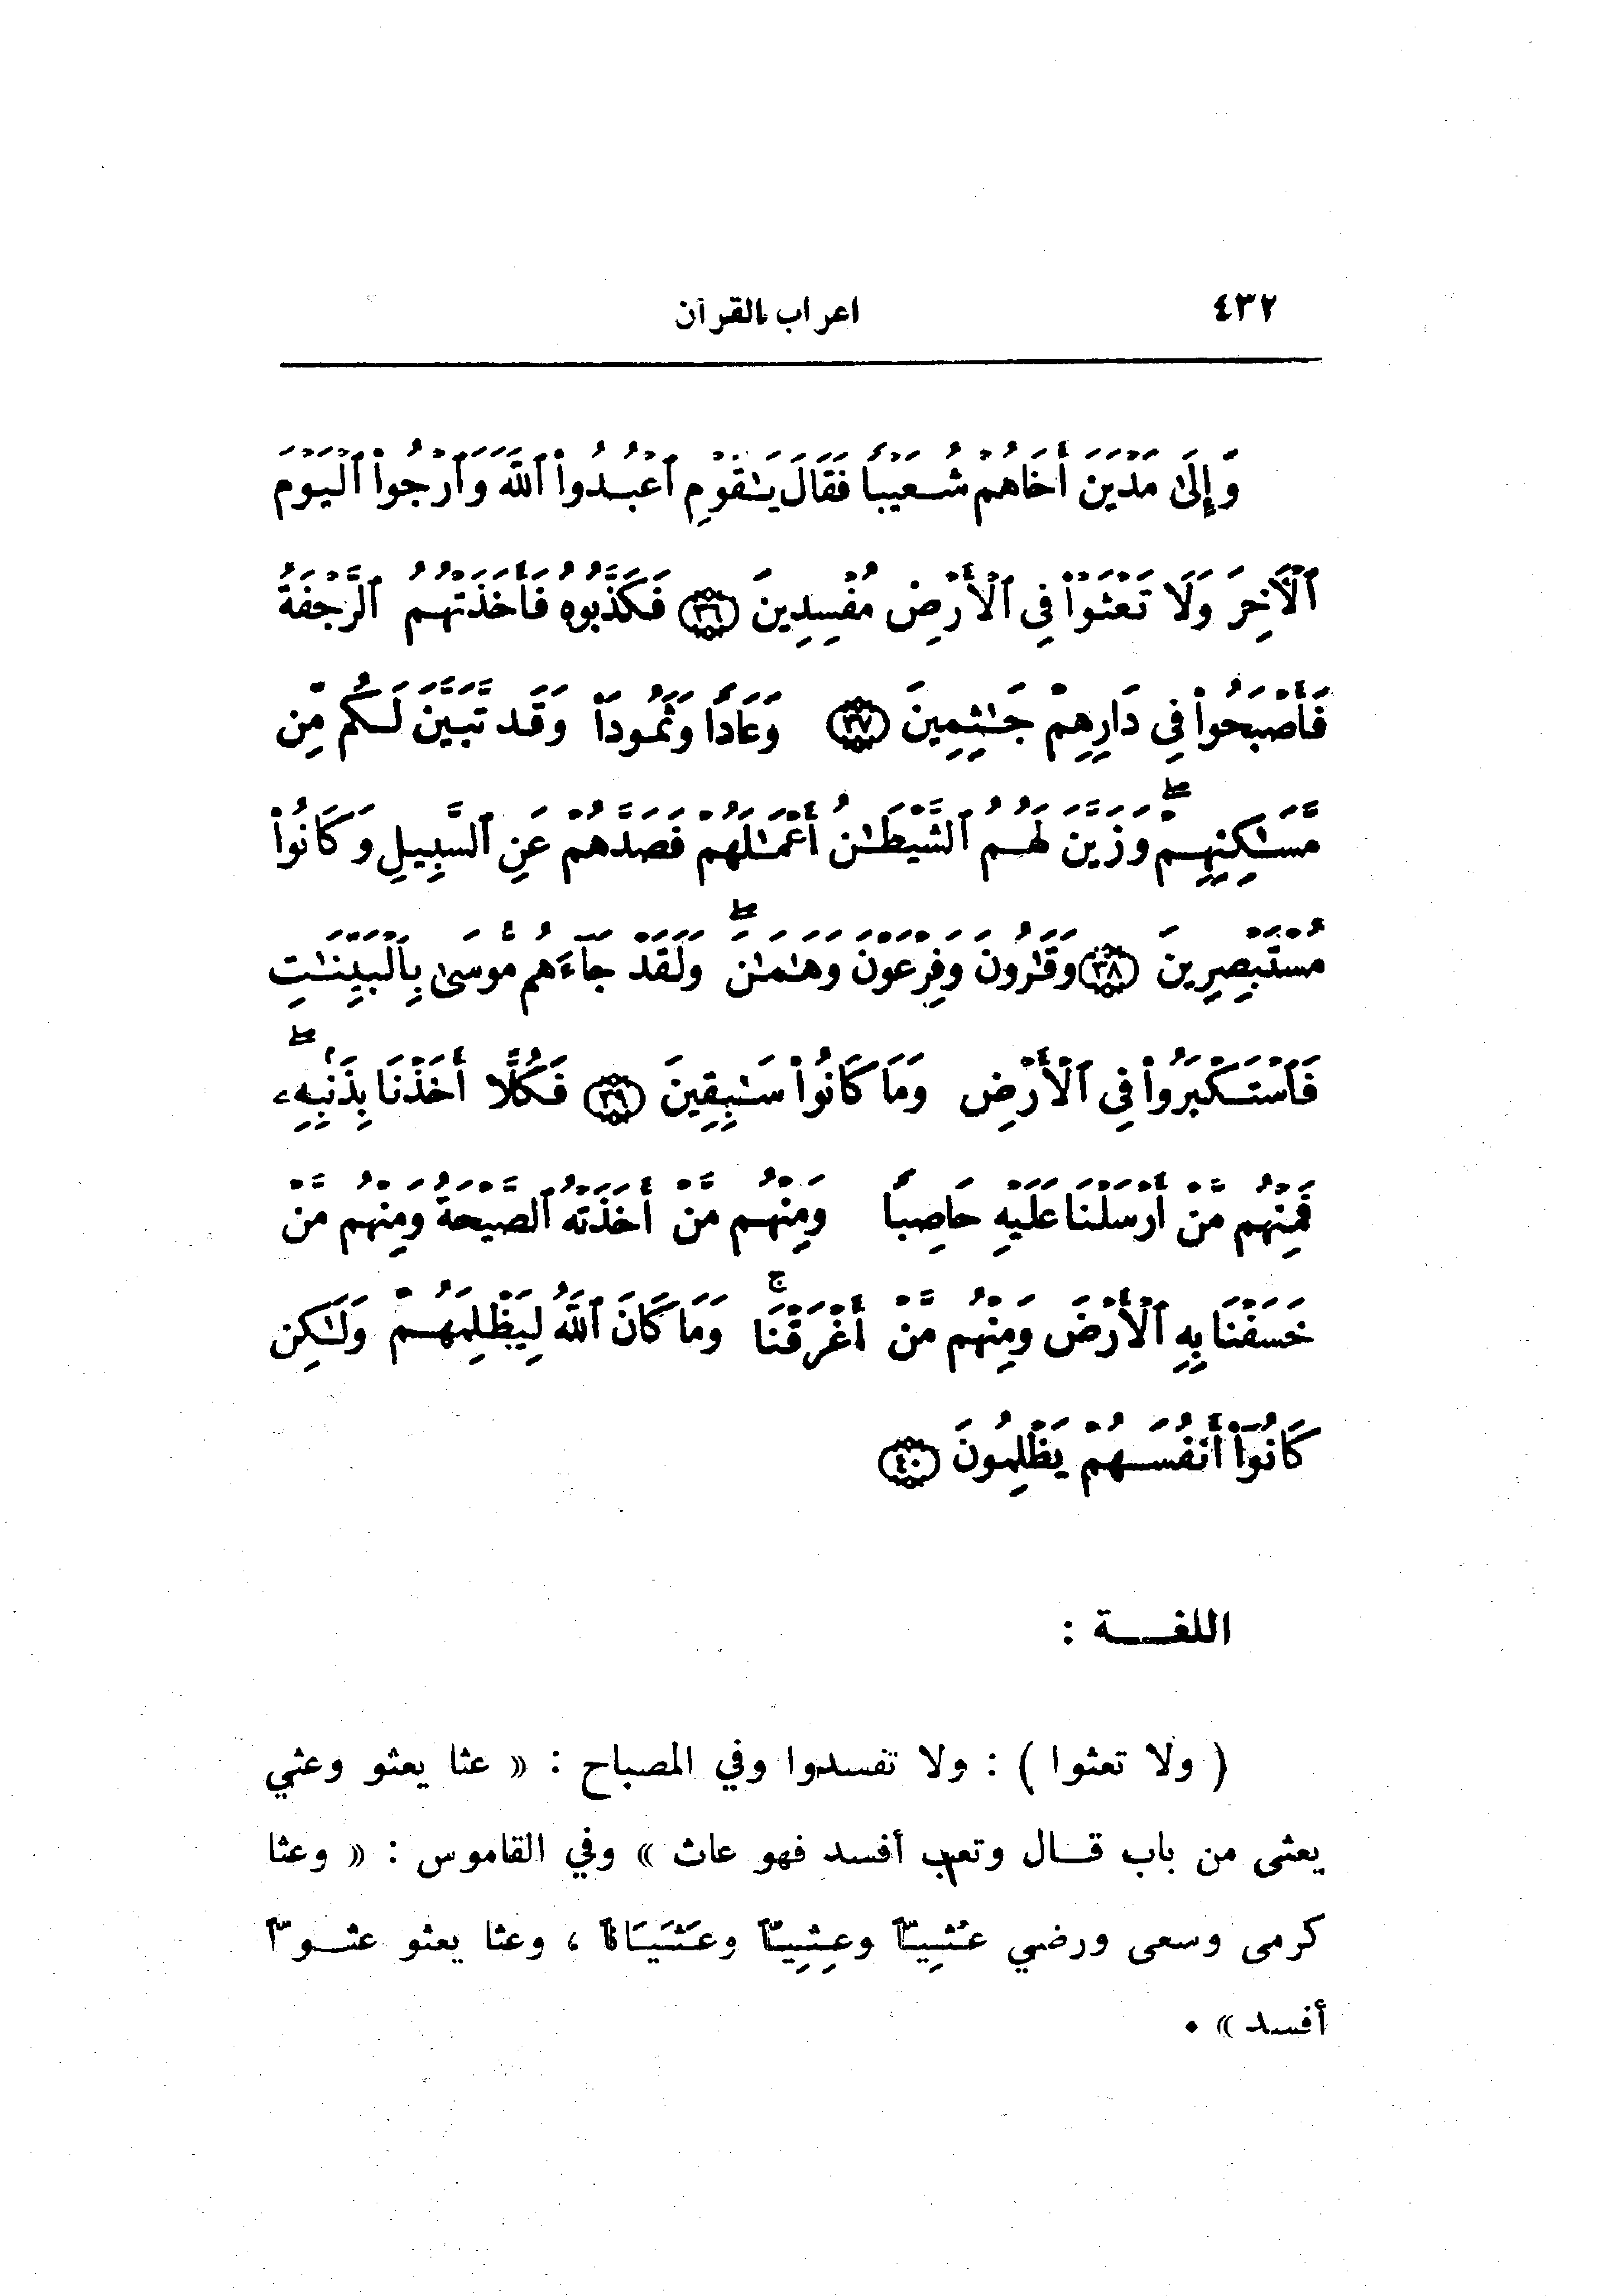 ٤٣٢ اعراب القرآن
وَإِلَىٰ مَدْيَنَ أَخَاهُمْ شُعَيْبًا فَقَالَ يَـٰقَوْمِ ٱعْبُدُوا۟ ٱللَّهَ وَٱرْجُوا۟ ٱلْيَوْمَ
ٱلْـَٔاخِرَ وَلَا تَعْثَوْا۟ فِى ٱلْأَرْضِ مُفْسِدِينَ ﴿٣٦﴾ فَكَذَّبُوهُ فَأَخَذَتْهُمُ ٱلرَّجْفَةُ
فَأَصْبَحُوا۟ فِى دَارِهِمْ جَـٰثِمِينَ ﴿٣٧﴾ وَعَادًا وَثَمُودَا۟ وَقَد تَّبَيَّنَ لَكُم مِّن
مَّسَـٰكِنِهِمْ ۖ وَزَيَّنَ لَهُمُ ٱلشَّيْطَـٰنُ أَعْمَـٰلَهُمْ فَصَدَّهُمْ عَنِ ٱلسَّبِيلِ وَكَانُوا۟
مُسْتَبْصِرِينَ ﴿٣٨﴾ وَقَـٰرُونَ وَفِرْعَوْنَ وَهَـٰمَـٰنَ ۖ وَلَقَدْ جَآءَهُم مُّوسَىٰ بِٱلْبَيِّنَـٰتِ
فَٱسْتَكْبَرُوا۟ فِى ٱلْأَرْضِ وَمَا كَانُوا۟ سَـٰبِقِينَ ﴿٣٩﴾ فَكُلًّا أَخَذْنَا بِذَنۢبِهِۦ ۖ
فَمِنْهُم مَّنْ أَرْسَلْنَا عَلَيْهِ حَاصِبًا وَمِنْهُم مَّنْ أَخَذَتْهُ ٱلصَّيْحَةُ وَمِنْهُم مَّنْ
خَسَفْنَا بِهِ ٱلْأَرْضَ وَمِنْهُم مَّنْ أَغْرَقْنَا ۚ وَمَا كَانَ ٱللَّهُ لِيَظْلِمَهُمْ وَلَـٰكِن
كَانُوٓا۟ أَنفُسَهُمْ يَظْلِمُونَ ﴿٤٠﴾
اللغـــة :
( ولا تعثوا ) : ولا تفسدوا وفي المصباح : « عثا يعثو وعثي
يعثى من باب قــال وتعب أفسد فهو عاث » وفي القاموس : « وعثا
كرمى وسعى ورضي عُثِيـّاً وعِثِيـّاً وعَثَيَاناً ، وعثا يعثو عثــوّاً
أفسد » .